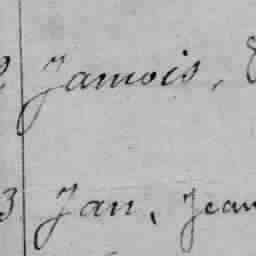 Jamois,
3 Jan, Jean